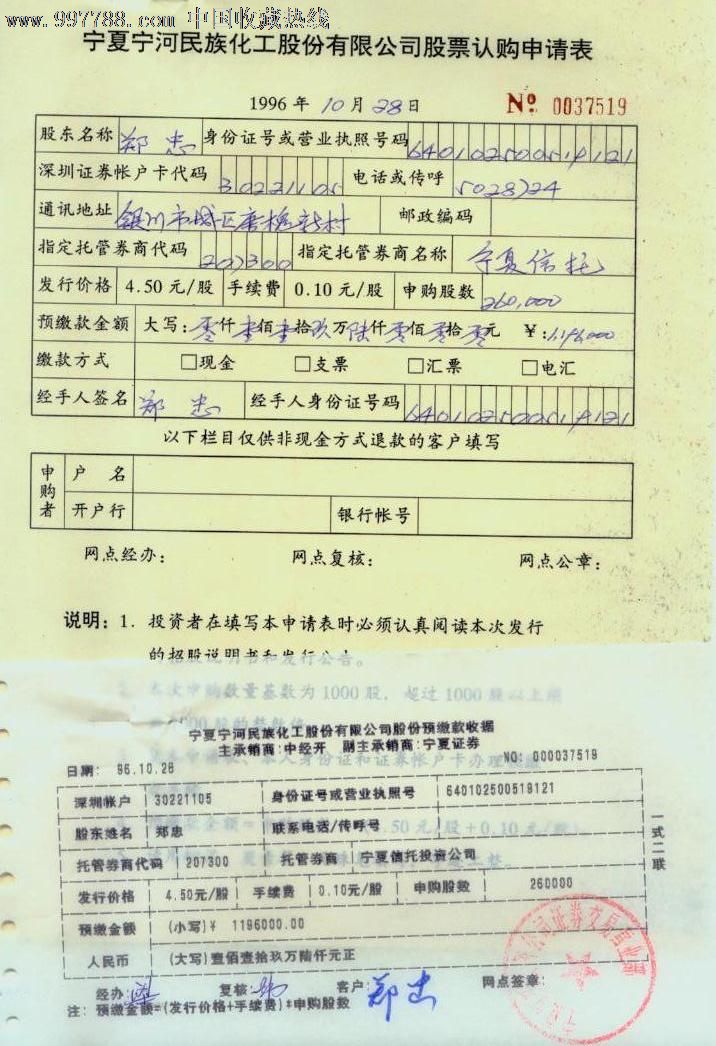 www.997788.com 中国收藏热线
宁夏宁河民族化工股份有限公司股票认购申请表
1996 年 10 月 28 日 Nº 0037519
股东名称 郑忠 身份证号或营业执照号码 640102500519121
深圳证券帐户卡代码 30221105 电话或传呼 5028724
通讯地址 银川市城区唐槐新村 邮政编码
指定托管券商代码 207300 指定托管券商名称 宁夏信托
发行价格 4.50 元/股 手续费 0.10 元/股 申购股数 260,000
预缴款金额 大写: 零仟壹佰壹拾玖万陆仟零佰零拾零元 ¥: 1,196,000
缴款方式 □现金 □支票 □汇票 □电汇
经手人签名 郑忠 经手人身份证号码 640102500519121
以下栏目仅供非现金方式退款的客户填写
申购者 户 名
开户行 银行帐号
网点经办: 网点复核: 网点公章:
说明: 1. 投资者在填写本申请表时必须认真阅读本次发行
的招股说明书和发行公告。
2. 本次申购数量基数为 1000 股, 超过 1000 股以上须
宁夏宁河民族化工股份有限公司股份预缴款收据
主承销商:中经开 副主承销商:宁夏证券
日期: 96.10.28 NO: 000037519
深圳帐户 30221105 身份证号或营业执照号 640102500519121
股东姓名 郑忠 联系电话/传呼号
托管券商代码 207300 托管券商 宁夏信托投资公司
发行价格 4.50元/股 手续费 0.10元/股 申购股数 260000
预缴金额 (小写)¥ 1196000.00
人民币 (大写)壹佰壹拾玖万陆仟元正
一式二联
经办: 复核: 客户: 郑忠 网点签章:
注: 预缴金额=(发行价格+手续费)*申购股数